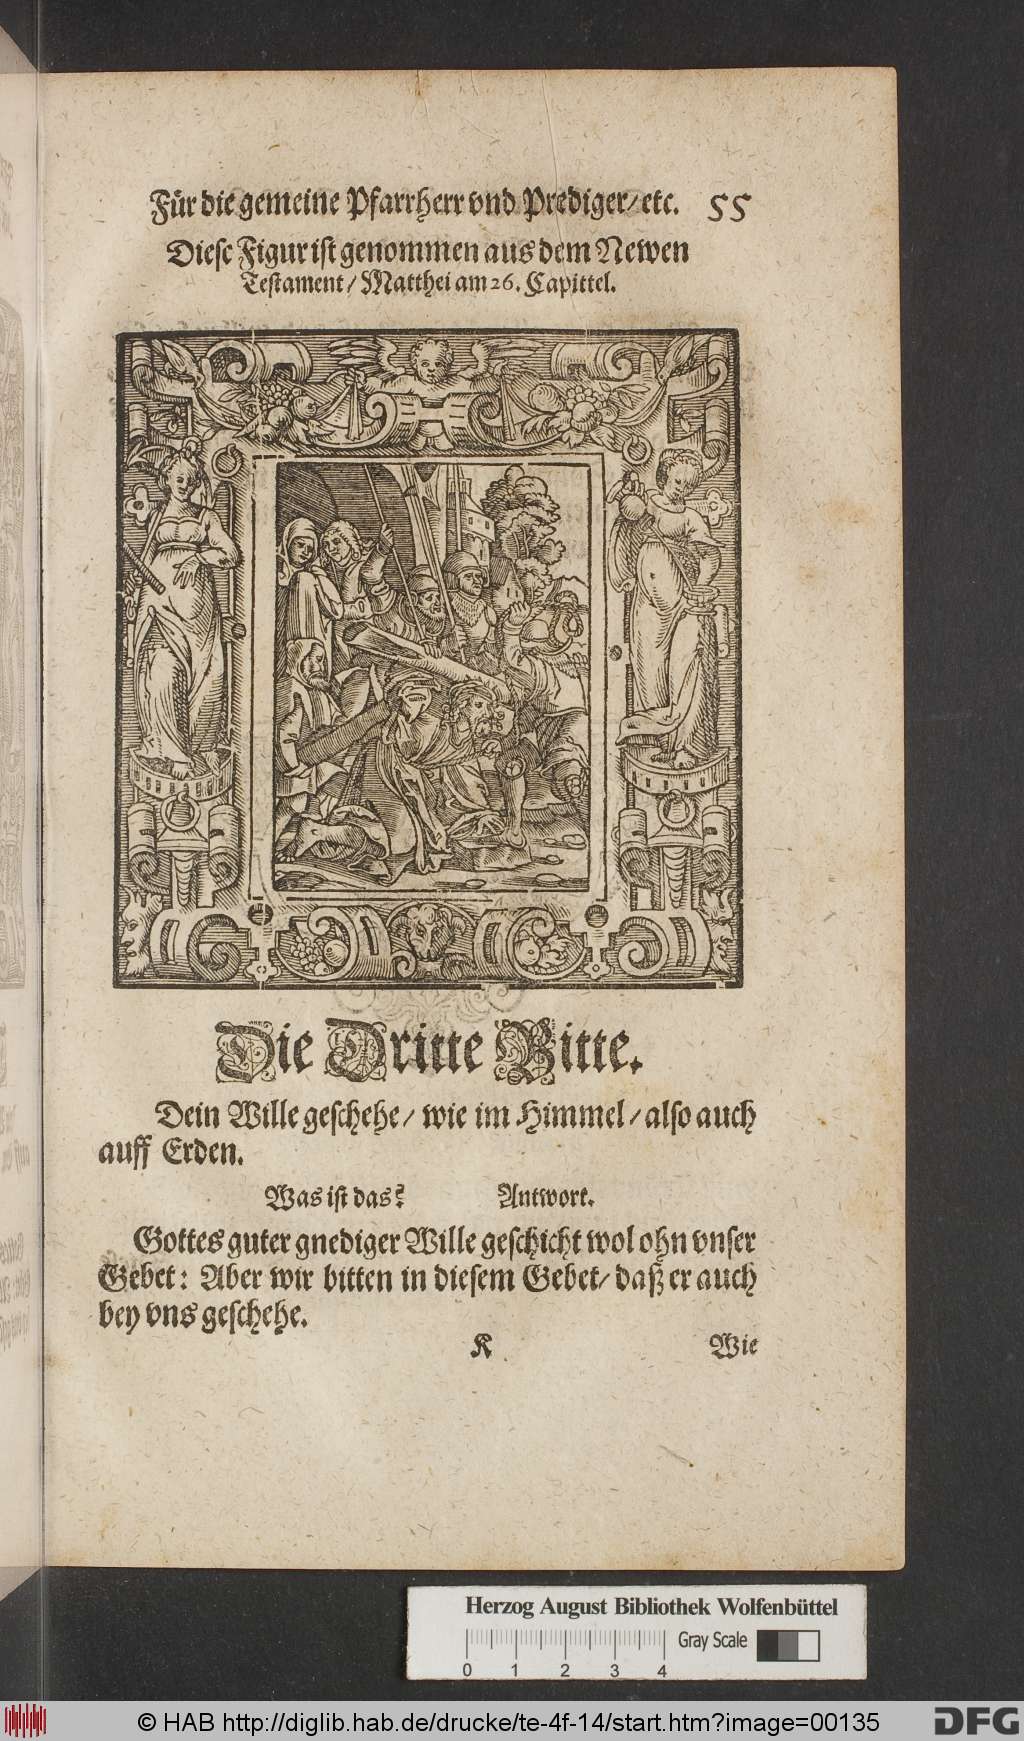 Für die gemeine Pfarrherr vnd Prediger/ etc. 55
Diese Figur ist genommen aus dem Newen
Testament/ Matthei am 26. Capittel.
Die Dritte Bitte.
Dein Wille geschehe/ wie im Himmel/ also auch
auff Erden.
Was ist das? Antwort.
Gottes guter gnediger Wille geschicht wol ohn vnser
Gebet: Aber wir bitten in diesem Gebet/ daß er auch
bey vns geschehe.
K Wie
Herzog August Bibliothek Wolfenbüttel
Gray Scale
0 1 2 3 4
© HAB http://diglib.hab.de/drucke/te-4f-14/start.htm?image=00135
DFG